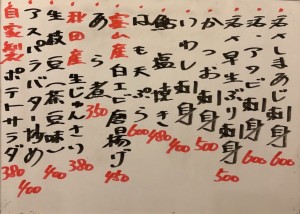 活〆しまあじ刺身 600
活〆アタビ刺身 600
活〆早生ぶり刺身 500
かつお刺身 500
いわし刺身 400
鮎塩焼き 480
はも天ぷら 600
富山産白エビ唐揚げ 450
あら煮 350
秋田産生じゅんさい 380
生枝豆(茶豆味) 400
アスパラバター炒め 400
自家製ポテトサラダ 380